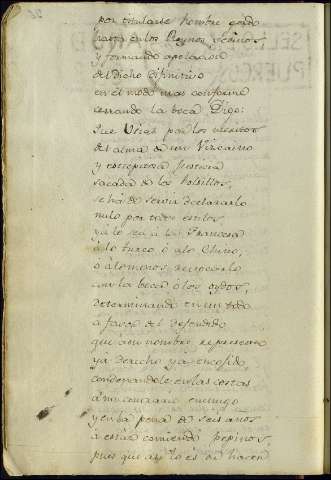 por titularse hombre gordo
hasta en los Reynos vecinos
y formando apelacion
del dicho difinitivo
en el modo mas conforme
cerrando la boca, Digo:
Que Usias por los meritos
del alma de un Vizcaino
y estrepitosa Justicia
sacada de los bolsillos,
se há de servir declararlo
nulo por todos estilos
yá lo sea á la Francesa
á lo turco ó alo Chino,
ó álomenos revocarlo
con la boca ó los oydos,
determinando en un todo
á favor del defendido
que á su nombre represento
yá derecho yá encogido
condenandole en las costas
á mi contrario enemigo
y en la pena de seis años
á estar comiendo pepinos,
pues que asi lo es de hacer